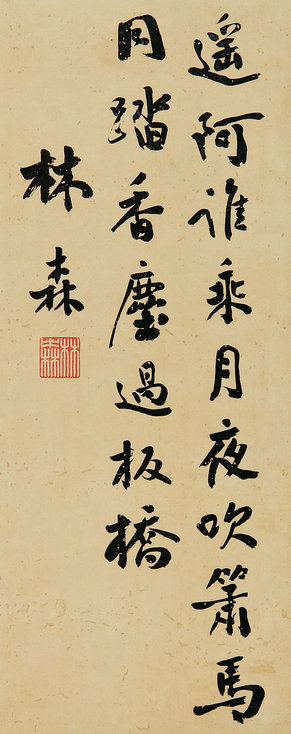 遥阿誰乘月夜吹簫馬
同踏香塵過板橋
林森
林森